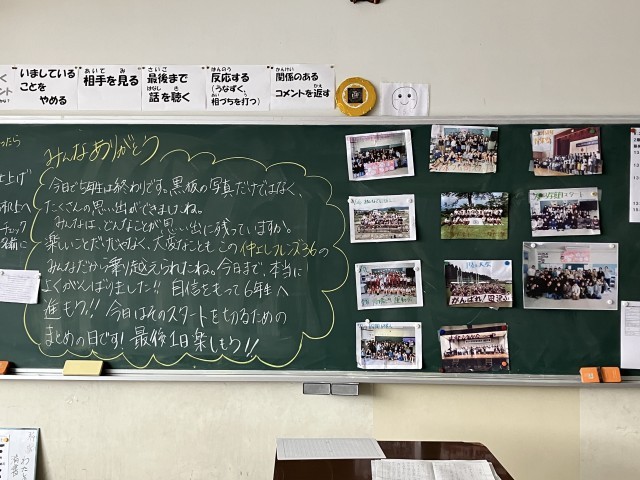 いましている
ことを
やめる
あいて み
相手を見る
さいご
最後まで
はなし き
話を聴く
はんのう
反応する
(うなずく、
あい う
相づちを打つ)
かんけい
関係のある
かえ
コメントを返す
みんなありがとう
今日で5年生は終わりです。黒板の写真だけではなく、
たくさんの思い出ができましたね。
みんなは、どんなことが思い出に残っていますか。
楽しいことだけじゃなく、大変なことも この仲よしフレンズ36の
みんなだから乗り越えられたね。今日まで、本当に
よくがんばりました!! 自信をもって6年生へ
進もう!! 今日はそのスタートをきるための
まとめの日です! 最後1日楽しもう!!